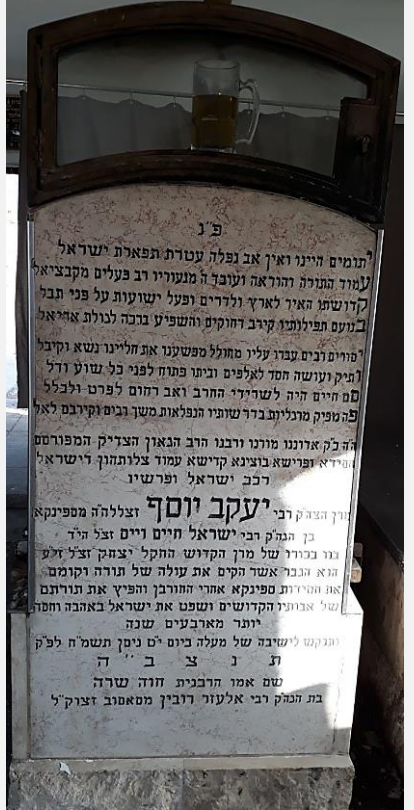 פ״נ
יתומים היינו ואין אב נפלה עטרת תפארת ישראל
עמוד התורה והוראה ועובד ה׳ מנעוריו רב פעלים מקבציאל
קדושתו האיר לארץ ולדרים ופעל ישועות על פני תבל
בנועם תפילותיו קירב רחוקים והשפיע ברכה לגולת אריאל
יסורים רבים עברו עליו מחולל מפשענו את חליינו נשא וקיבל
ותיק ועושה חסד לאלפים וביתו פתוח לפני כל שוע ודל
סם חיים היה לשרידי החרב ואב רחום לפרט ולכלל
פה מפיק מרגליות בדרשותיו הנפלאות משך רבים וקירבם לאל
ה״ה כ״ק אדוננו מורנו ורבנו הרב הגאון הצדיק המפורסם
חסידא ופרישא בוצינא קדישא עמוד צלותהון דישראל
רכב ישראל ופרשיו
מרן הצה״ק רבי יעקב יוסף זצללה״ה מספינקא
בן הגה״ק רבי ישראל חיים וייס זצ״ל הי״ד
בנו בכורו של מרן הקדוש החקל יצחק זצ״ל זי״ע
הוא הגבר אשר הקים את עולה של תורה וקומם
את חסידות ספינקא אחרי החורבן והפיץ את תורתם
של אבותיו הקדושים ושפט את ישראל באהבה וחסד
יותר מארבעים שנה
ונתבקש לישיבה של מעלה ביום י״ט ניסן תשמ״ח לפ״ק
ת נ צ ב ״ ה
שם אמו הרבנית חוה שרה
בת הגה״ק רבי אלעזר רובין מסאסוב זצוק״ל